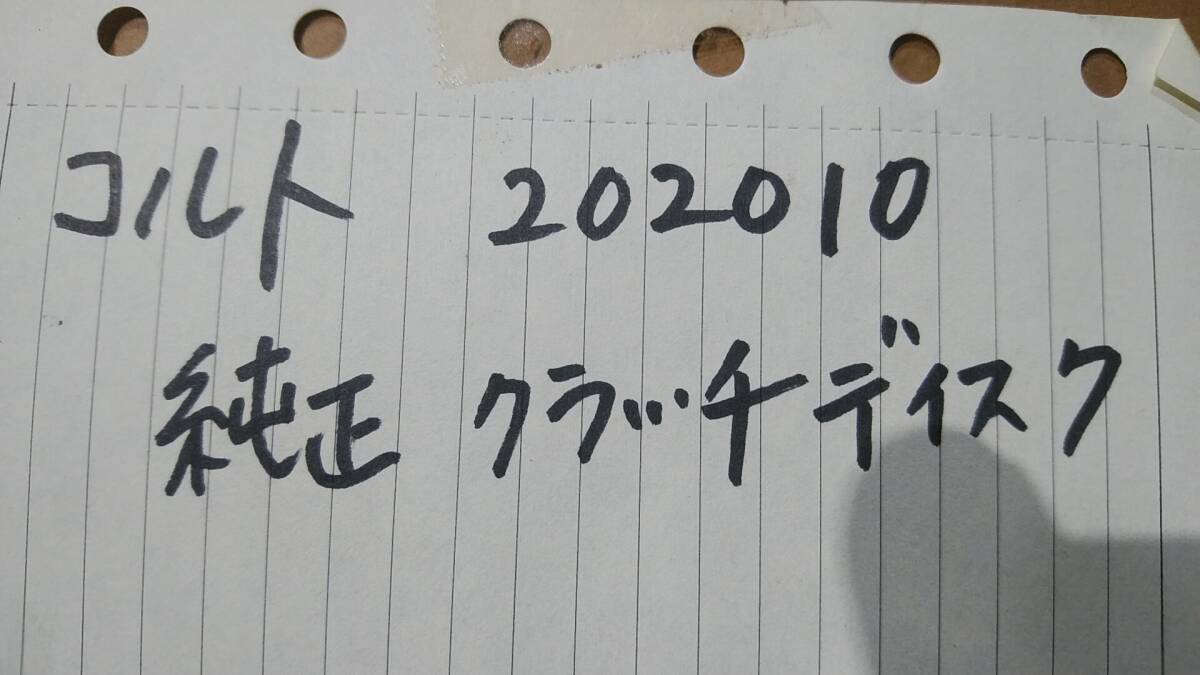 コルト 202010
純正 クラッチディスク